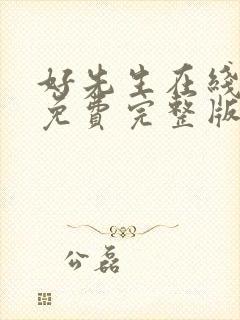 好先生在线
免费完整版
公磊